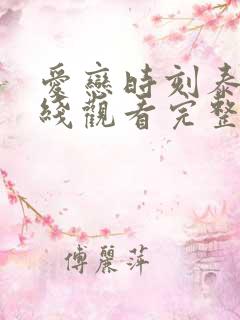 愛戀時刻泰
綫觀看完整
傅麗萍